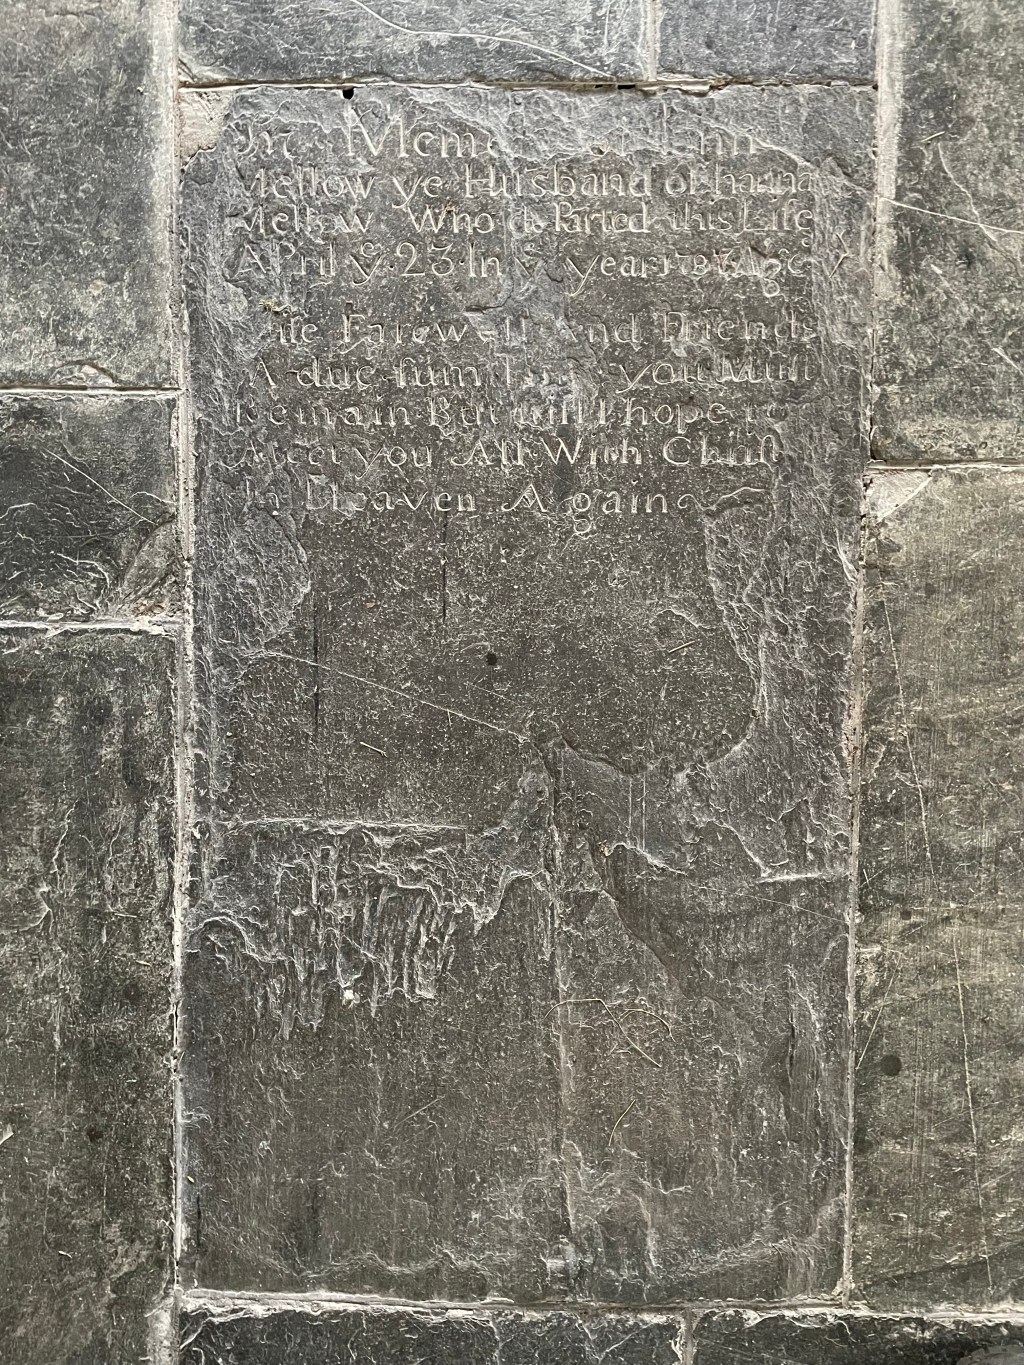 In Memo
Mellow ye Husband of hanna
Mellow Who de Parted this Life
April ye 23 In ye year Age
Farewell And Friends
A due you Must
Remain But will I hope to
Meet you All With Christ
In Heaven Again